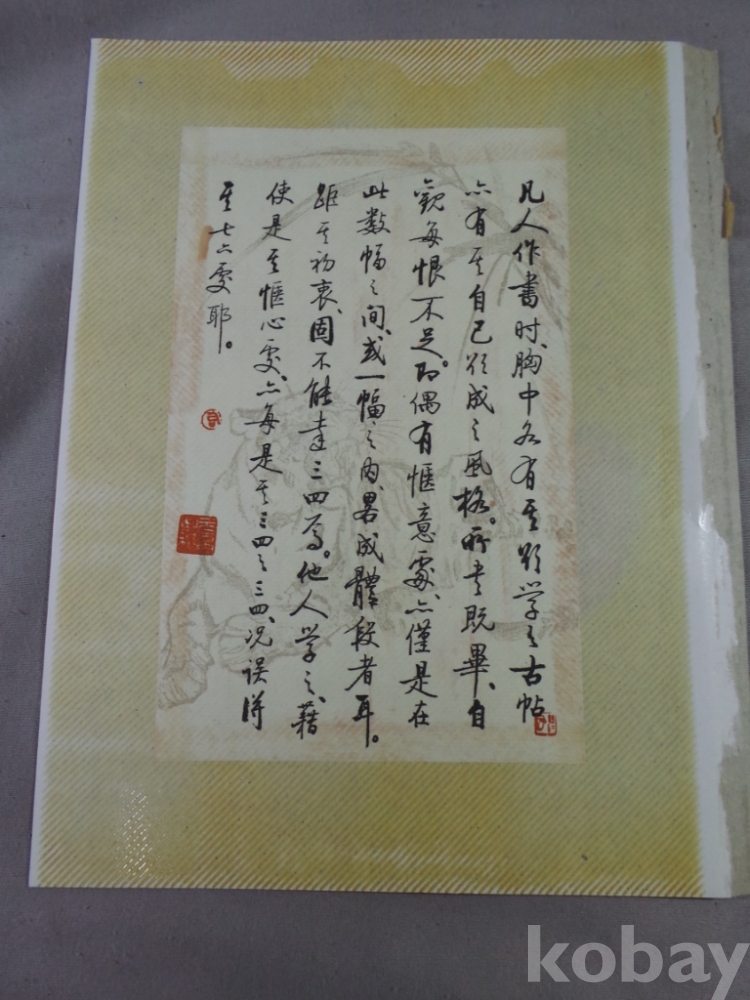 凡人作書时、胸中各有其欲学之古帖
亦有其自己欲成之風格。所書既畢、自
觀每恨不足。即偶有愜意處、亦僅是在
此数幅之间、或一幅之内、畧成體段者耳。
距其初衷、固不能達三四焉。他人学之、藉
使是其愜心處、亦每是其三四之三四、况误得
其七六處耶。
kobay